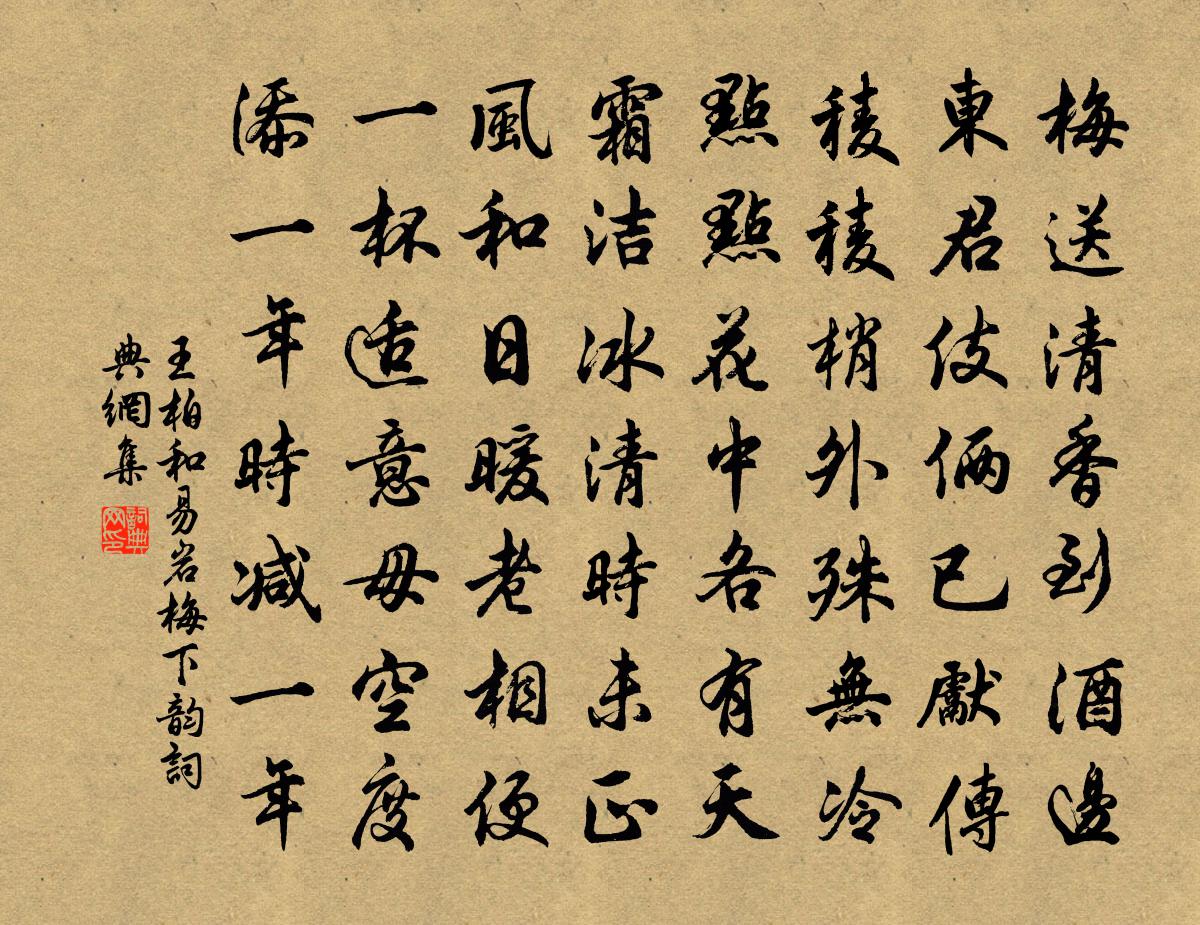 梅送清香到酒邊
東君伎倆已獻傳
稜稜梢外殊無冷
點點花中各有天
霜洁冰清時未正
風和日暖老相便
一杯适意毋空度
添一年時減一年
王柏和易岩梅下韵詞
典網集
詞典网印